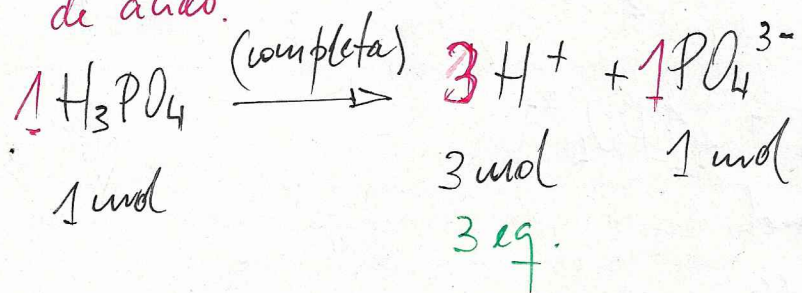 de ácido.
1 H₃PO₄ (completa) → 3 H⁺ + 1 PO₄³⁻
1 mol 3 mol 1 mol
3 eq.